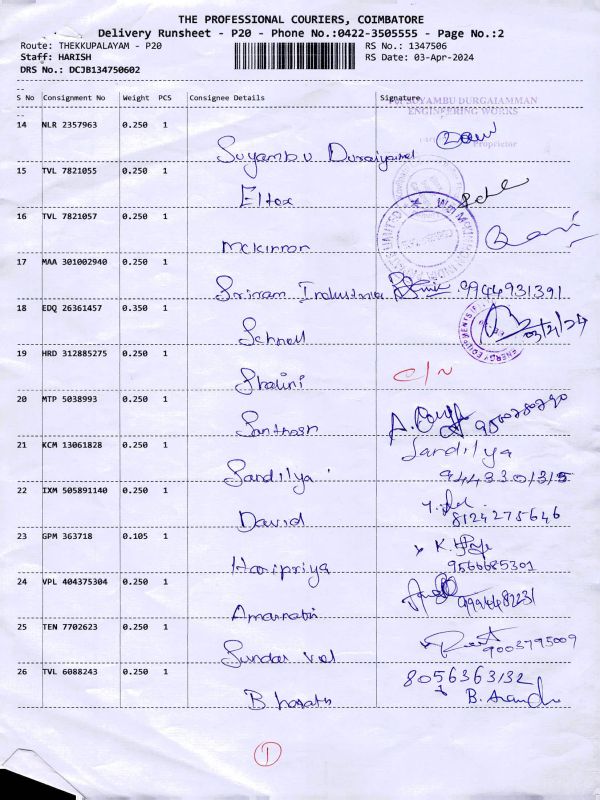 THE PROFESSIONAL COURIERS, COIMBATORE
Delivery Runsheet - P20 - Phone No.:0422-3505555 - Page No.:2
Route: THEKKUPALAYAM - P20 RS No.: 1347506
Staff: HARISH RS Date: 03-Apr-2024
DRS No.: DCJB134750602
S No Consignment No Weight PCS Consignee Details Signature
SUYAMBU DURGAIAMMAN
ENGINEERING WORKS
Proprietor
14 NLR 2357963 0.250 1
Suyambu
15 TVL 7821055 0.250 1
Eltex
16 TVL 7821057 0.250 1
Mckinnon
17 MAA 301002940 0.250 1
Sriram Industries 9944931391
18 EDQ 26361457 0.350 1
Schnell 03/4/24
19 HRD 312885275 0.250 1
Shalini C/N
20 MTP 5038993 0.250 1
Santhosh
21 KCM 13061828 0.250 1
Sandilya Sandilya
9443301315
22 IXM 505891140 0.250 1
David 8124275646
23 GPM 363718 0.105 1
Haripriya 9566685301
24 VPL 404375304 0.250 1
Amarnath
25 TEN 7702623 0.250 1
Sundar vel 9003795009
26 TVL 6088243 0.250 1 8056363132
Bharath
1